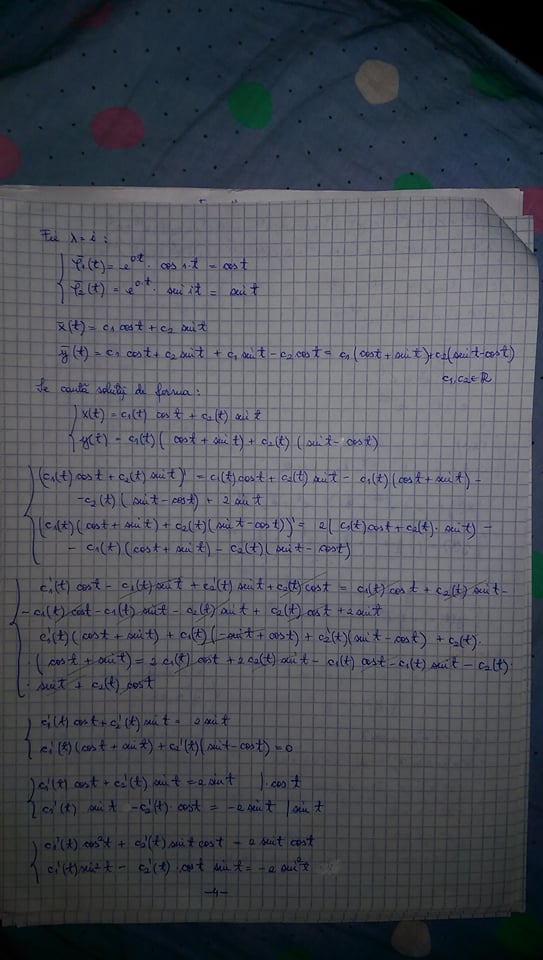 Fie λ = i :
φ̄₁(t) = e^{0·t} · cos 1·t = cos t
φ̄₂(t) = e^{0·t} · sin 1t = sin t
x̄(t) = c₁ cos t + c₂ sin t
ȳ(t) = c₁ cos t + c₂ sin t + c₁ sin t - c₂ cos t = c₁ (cos t + sin t) + c₂ (sin t - cos t)
c₁, c₂ ∈ ℝ
Se caută soluții de forma :
x(t) = c₁(t) cos t + c₂(t) sin t
y(t) = c₁(t) ( cos t + sin t) + c₂(t) ( sin t - cos t)
(c₁(t) cos t + c₂(t) sin t)' = c₁(t) cos t + c₂(t) sin t - c₁(t) (cos t + sin t) -
- c₂(t) ( sin t - cos t) + 2 sin t
(c₁(t) (cos t + sin t) + c₂(t) (sin t - cos t))' = 2( c₁(t) cos t + c₂(t) · sin t) -
- c₁(t) (cos t + sin t) - c₂(t) ( sin t - cos t)
c₁'(t) cos t - c₁(t) sin t + c₂'(t) sin t + c₂(t) cos t = c₁(t) cos t + c₂(t) sin t -
- c₁(t) cos t - c₁(t) sin t - c₂(t) sin t + c₂(t) cos t + 2 sin t
c₁'(t) ( cos t + sin t) + c₁(t) (- sin t + cos t) + c₂'(t) (sin t - cos t) + c₂(t) ·
· ( cos t + sin t) = 2 c₁(t) cos t + 2 c₂(t) sin t - c₁(t) cos t - c₁(t) sin t - c₂(t) ·
· sin t + c₂(t) cos t
c₁'(t) cos t + c₂'(t) sin t = 2 sin t
c₁'(t) (cos t + sin t) + c₂'(t) (sin t - cos t) = 0
c₁'(t) cos t + c₂'(t) sin t = 2 sin t | · cos t
c₁'(t) sin t - c₂'(t) · cos t = - 2 sin t | sin t
c₁'(t) cos² t + c₂'(t) sin t cos t = 2 sin t cos t
c₁'(t) sin² t - c₂'(t) · cos t sin t = - 2 sin² t
-4-